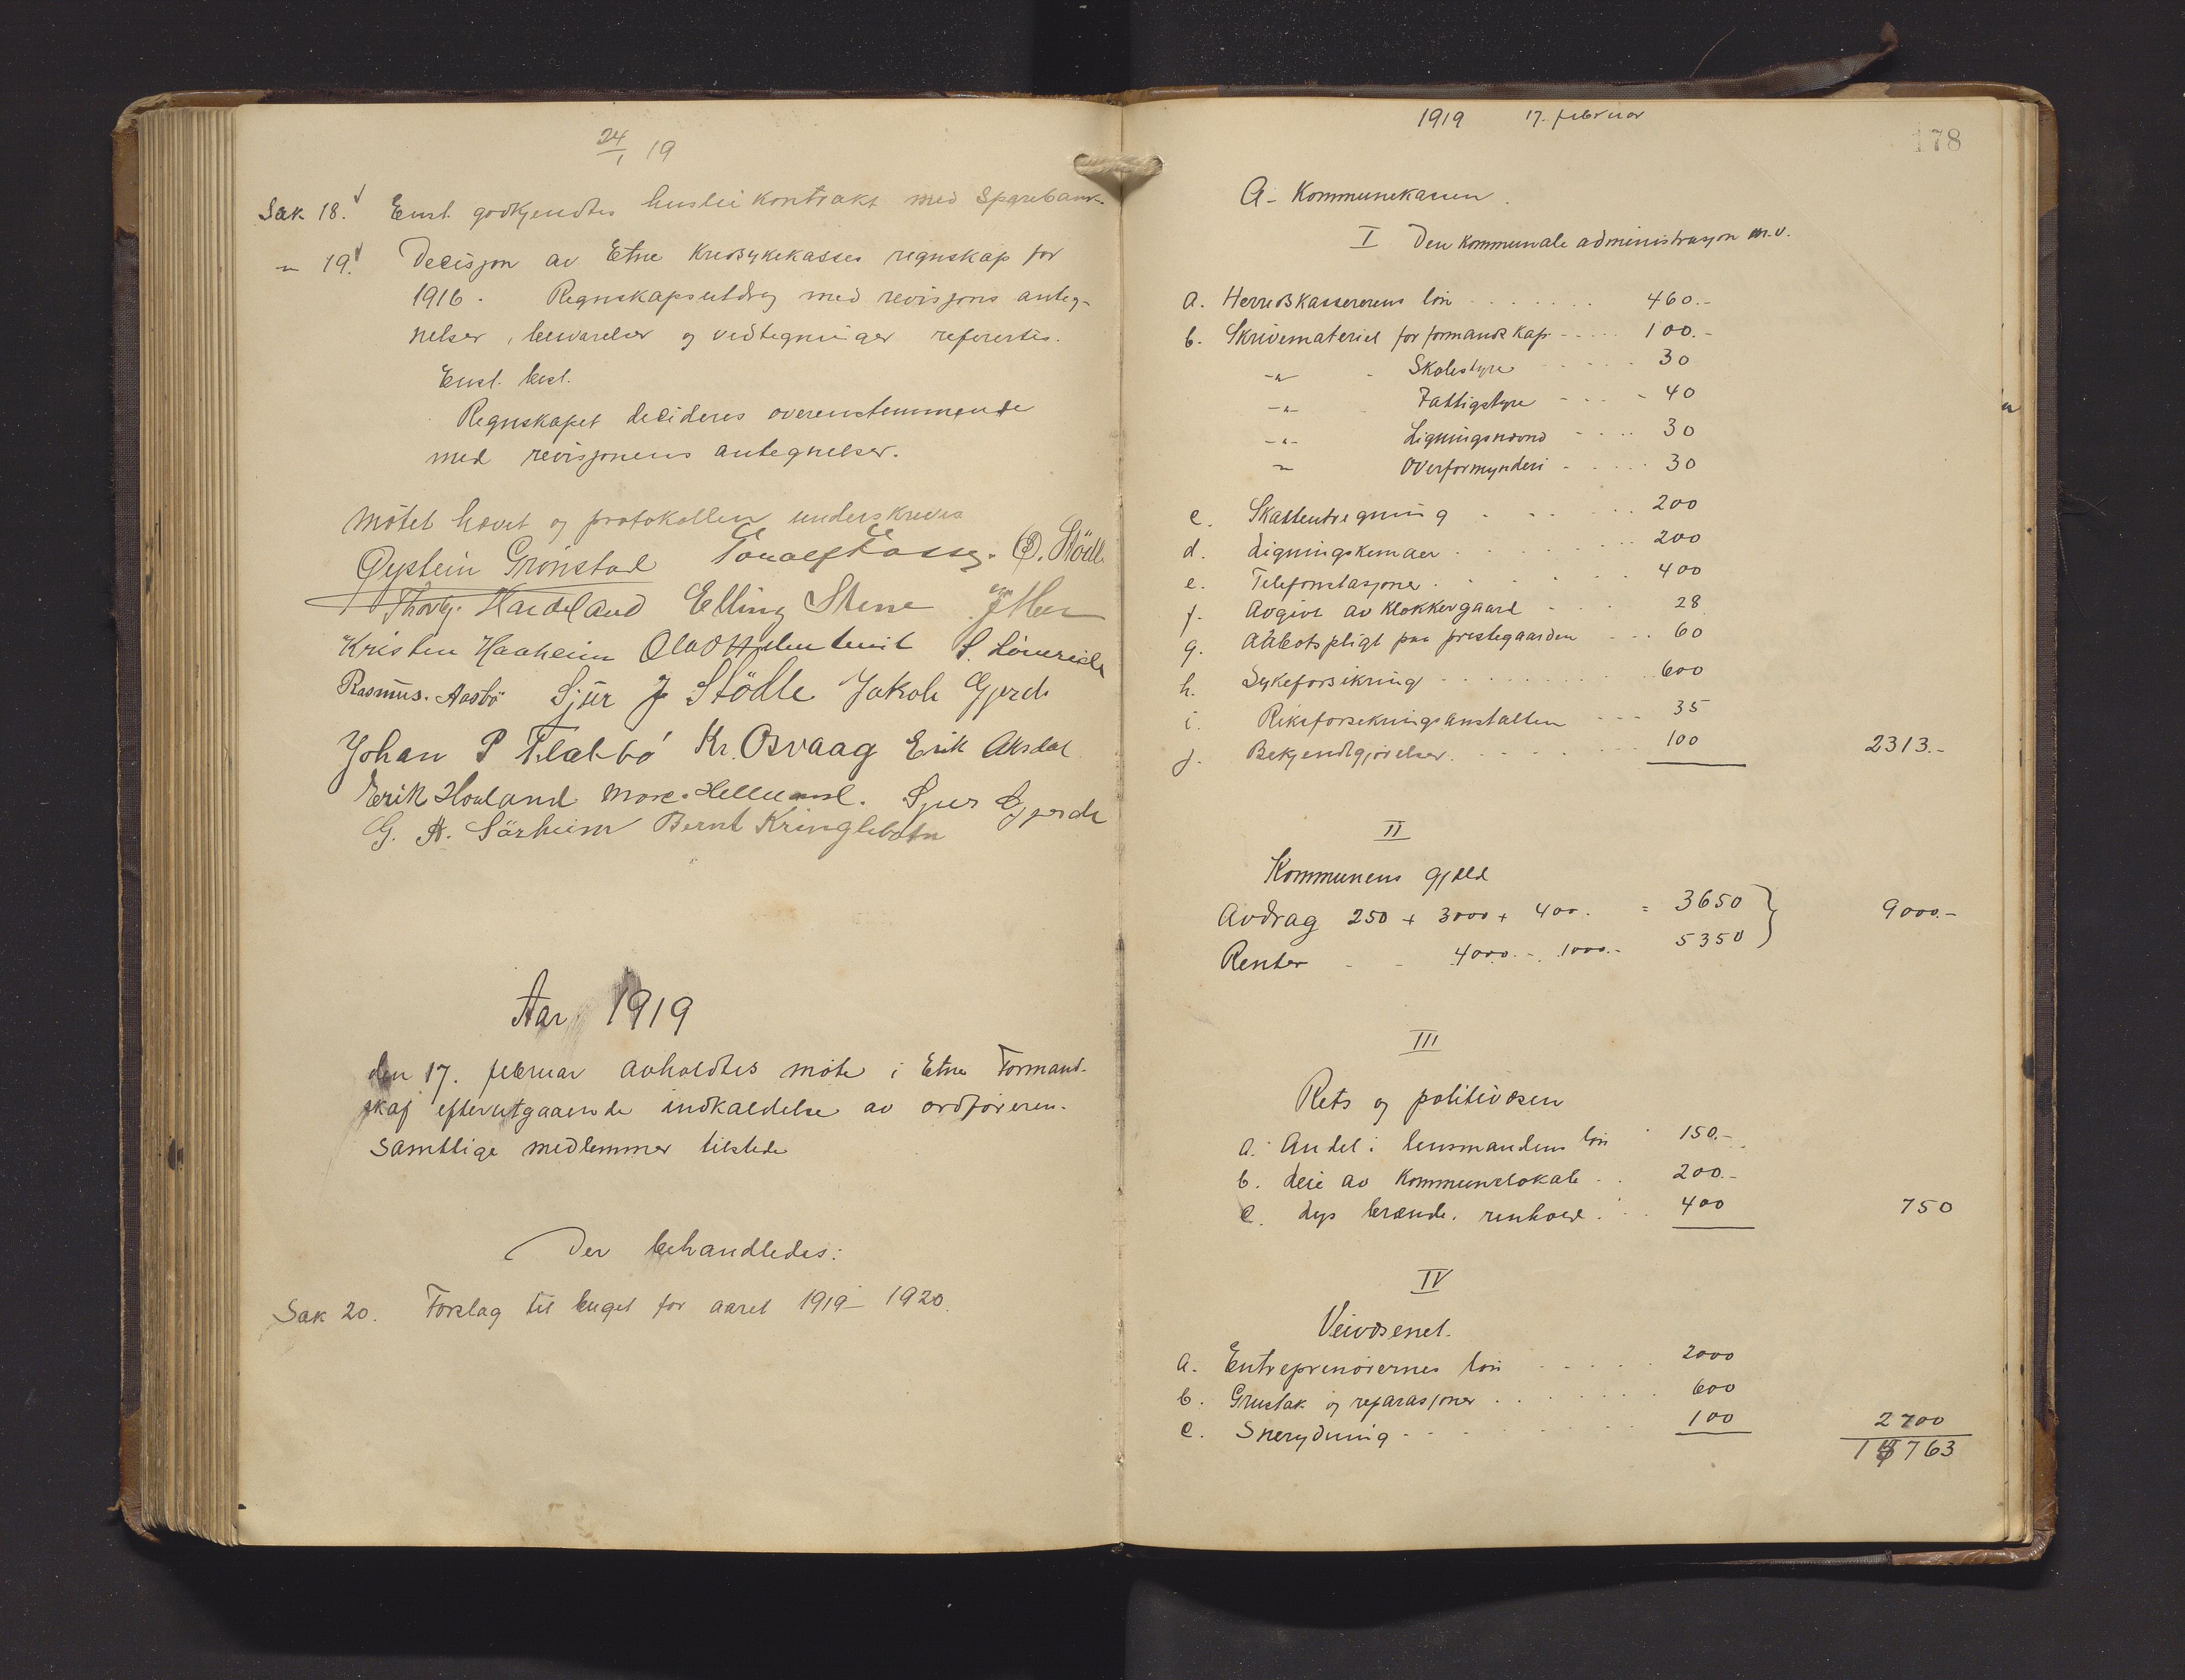 24/1 19
Sak 18. Enst. godkjendtes husleiekontrakt med Sparebank.
" 19. Decisjon av Etne Kredssykekasses regnskap for
1916. Regnskapsutdrag med revisjons anteg-
nelser, besvarelser og vedtegninger refertes.
Enst. besl.
Regnskapet decideres overenstemmende
med revisjonens antegnelser.
Møtet hævet og protokollen underskreves
Øystein Grønstad Ø. Stödle
Thorbj. Hardeland Elling Stene
Kristen Haaheim
Rasmus. Aasbö Sjur J Stödle Jakob Gjerde
Johan P Kr. Osvaag Erik Aksdal
Erik Houland Sjur Gjerde
G. A. Särheim Bernt Kringlebotn
Aar 1919
den 17. februar avholdtes møte i Etne Formand-
skap efter utgaaende indkaldelse av ordføreren.
Samtlige medlemmer tilstede
Der behandledes:
Sak 20. Forslag til buget for aaret 1919 - 1920.
1919 17. februar
178
A - Kommunekassen.
I Den kommunale administrasjon m.v.
a. Herredskassererens løn 460.-
b. Skrivemateriel for formandskap 100.-
-"- Skolestyre 30
-"- Fattigstyre 40
-"- Ligningsnævnd 30
" Overformynderi 30
c. Skatteutregning 200
d. Ligningskemaer 200
e. Telefonstasjoner 400
f. Avgivt av klokkergaard 28
g. Aabotspligt paa prestegaarden 60
h. Sykeforsikring 600
i. Riksforsikringsanstalten 35
j. Bekjendtgjørelser 100 2313.-
II
Kommunens gjæld
Avdrag 250 + 3000 + 400. = 3650 } 9000.-
Renter - - 4000. - 1000.- 5350
III
Rets og politivæsen
a. Andel i lensmandens løn 150.-
b. Leie av kommunelokale 200.-
c. Lys brænde. renhold 400 750
IV
Veivæsenet.
a. Entreprenørernes løn 2000
b. Grustak og reparasjoner 600
c. Snerydning 100 2700
14763